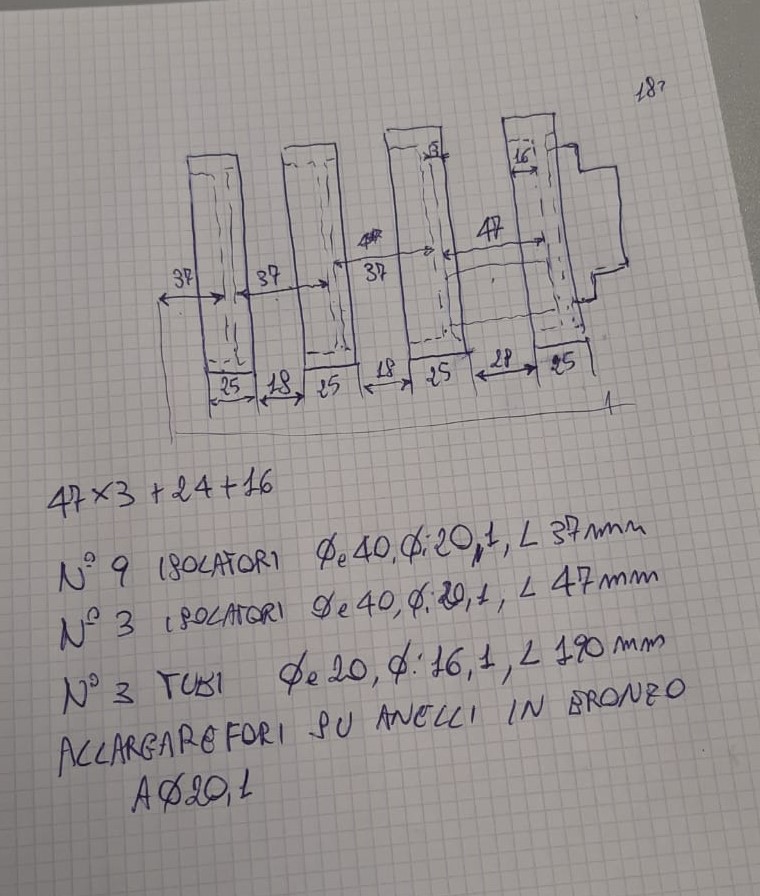 16
47
37
37
37
37
25
18
25
18
25
28
25
47×3 + 24 + 16
N° 9 ISOLATORI Øe 40, Øi 20,1, L 37 mm
N° 3 ISOLATORI Øe 40, Øi 20,1, L 47 mm
N° 3 TUBI Øe 20, Øi 16,1, L 190 mm
ALLARGARE FORI SU ANELLI IN BRONZO
A Ø20,1